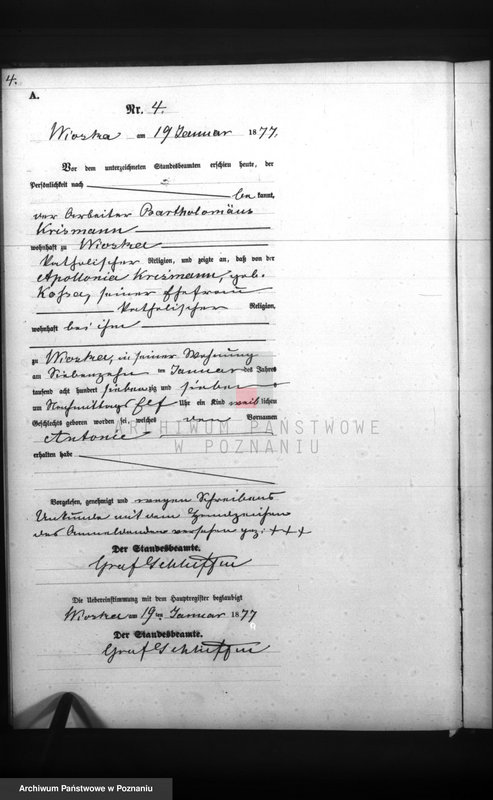 4.
A.
Nr. 4.
Wioska am 19 Januar 1877.
Vor dem unterzeichneten Standesbeamten erschien heute, der
Persönlichkeit nach
be kannt,
der Arbeiter Bartholomäus
Krismann
wohnhaft zu Wioska
katholischer Religion, und zeigte an, daß von der
Apollonia Krismann, geb.
seiner Ehefrau
katholischer Religion,
wohnhaft bei ihm
zu Wioska, in seiner Wohnung
am Siebenzehn ten Januar des Jahres
tausend acht hundert sieben zig und sieben
um Nachmittags elf Uhr ein Kind weib lichen
Geschlechts geboren worden sei, welches den Vornamen
Antonie
erhalten habe
ARCHIWUM PAŃSTWOWE
W POZNANIU
Vorgelesen, genehmigt und wegen Schreibens
Unkunde mit dem Handzeichen
des Anmeldenden versehen gez: +++
Der Standesbeamte.
Graf Schlieffen
Die Uebereinstimmung mit dem Hauptregister beglaubigt
Wioska am 19 ten Januar 1877
Der Standesbeamte.
Graf Schlieffen
Archiwum Państwowe w Poznaniu